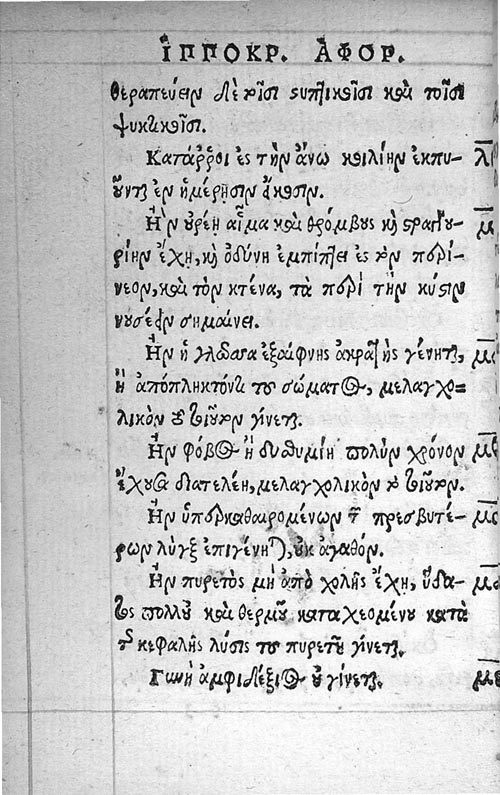 ἹΠΠΟΚΡ. ἈΦΟΡ.
θεραπεύειν δὲ τοῖσι ϛυπτικοῖσι καὶ τοῖσι
ψυκτικοῖσι.
Κατάῤῥοι ἐς τὴν ἄνω κοιλίην ἐκπυ-
οῦνται ἐν ἡμέρῃσιν εἴκοσιν.
Ἢν οὐρέῃ αἷμα καὶ θρόμβους καὶ ϛραγγου-
ρίην ἔχῃ, καὶ ὀδύνη ἐμπίπτει ἐς τὸν περί-
νεον, καὶ τὸν κτένα, τὰ περὶ τὴν κύϛιν
νοσέειν σημαίνει.
Ἢν ἡ γλῶσσα ἐξαίφνης ἀκρατὴς γένηται,
ἢ ἀπόπληκτόν τι τοῦ σώματος, μελαγχο-
λικὸν τὸ τοιοῦτον γίνεται.
Ἢν φόβος ἢ δυσθυμίη πολὺν χρόνον
ἔχουσα διατελέῃ, μελαγχολικὸν τὸ τοιοῦτον.
Ἢν ὑπερκαθαιρομένων τῶν πρεσβυτέ-
ρων λὺγξ ἐπιγένηται, οὐκ ἀγαθόν.
Ἢν πυρετὸς μὴ ἀπὸ χολῆς ἔχῃ, ὕδα-
τος πολλοῦ καὶ θερμοῦ καταχεομένου κατὰ
τῆς κεφαλῆς λύσις τοῦ πυρετοῦ γίνεται.
Γυνὴ ἀμφιδέξιος οὐ γίνεται.